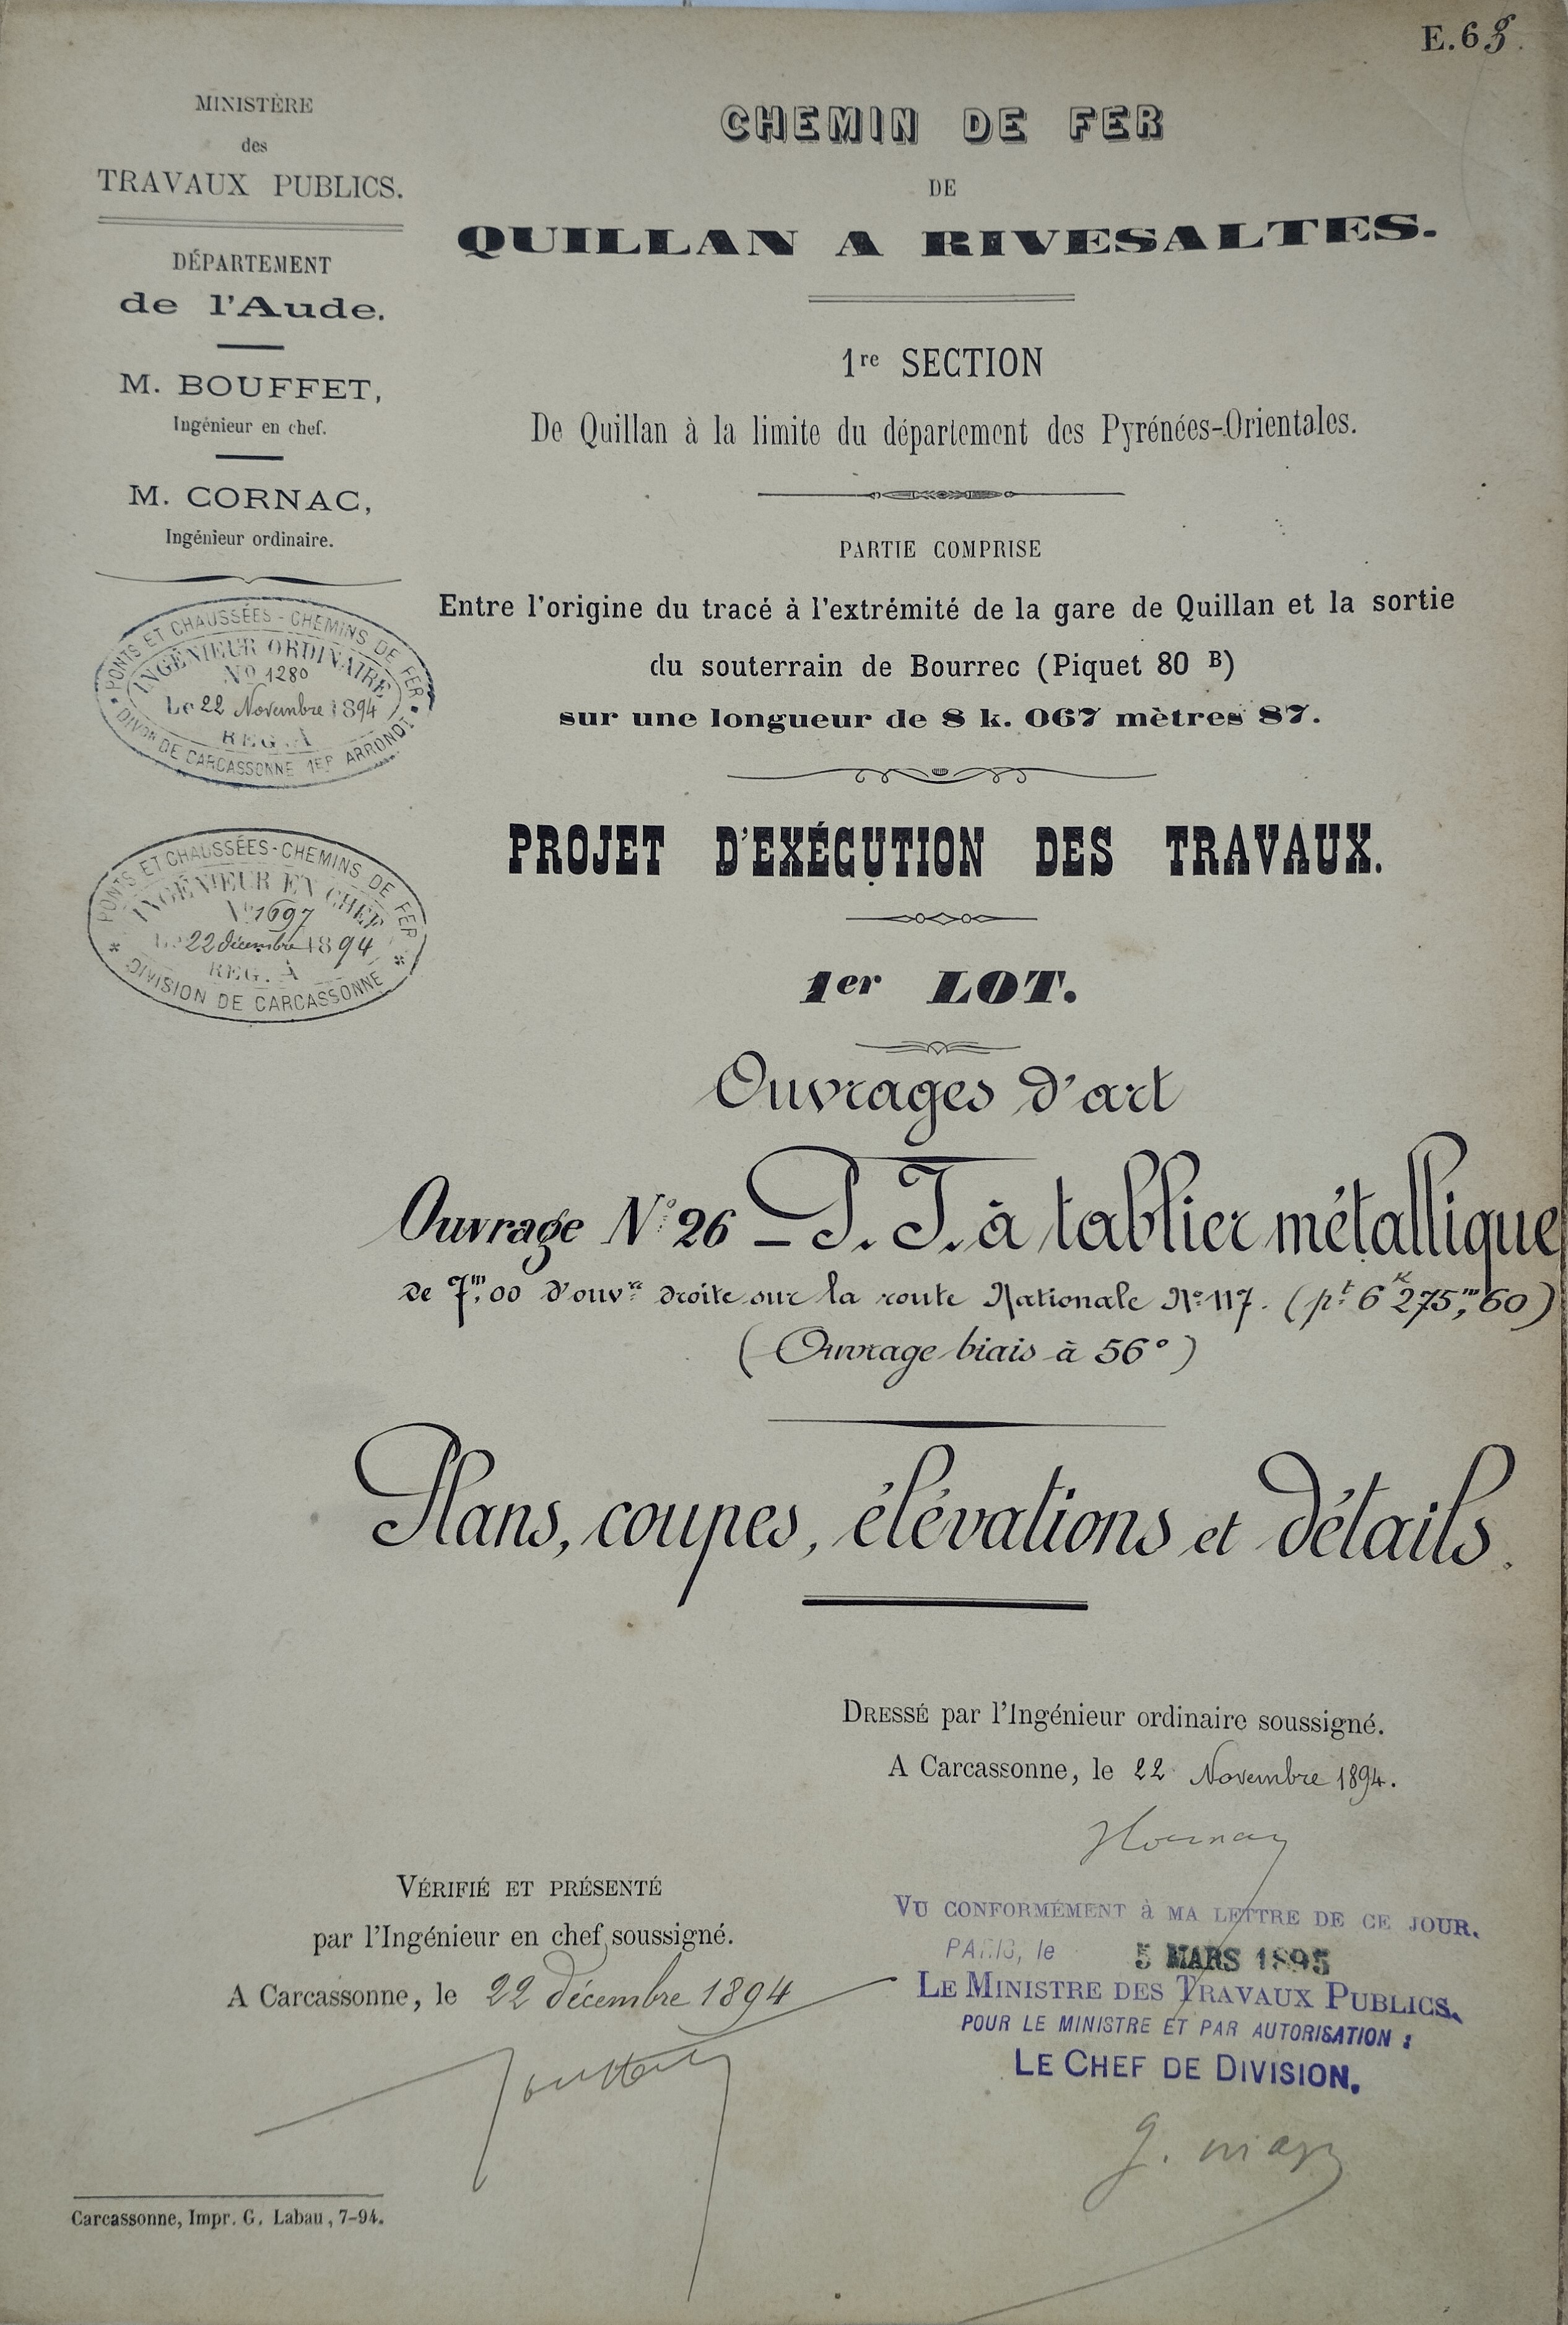 E.68.
MINISTÈRE
des
TRAVAUX PUBLICS.
DÉPARTEMENT
de l'Aude.
M. BOUFFET,
Ingénieur en chef.
M. CORNAC,
Ingénieur ordinaire.
PONTS ET CHAUSSÉES - CHEMINS DE FER
INGÉNIEUR ORDINAIRE
No 1280
Le 22 Novembre 1894
REG. A
DIVON DE CARCASSONNE 1ER ARRONDT
PONTS ET CHAUSSÉES - CHEMINS DE FER
INGÉNIEUR EN CHEF
No 1697
Le 22 décembre 1894
REG. A
DIVISION DE CARCASSONNE
CHEMIN DE FER
DE
QUILLAN A RIVESALTES.
1re SECTION
De Quillan à la limite du département des Pyrénées-Orientales.
PARTIE COMPRISE
Entre l'origine du tracé à l'extrémité de la gare de Quillan et la sortie
du souterrain de Bourrec (Piquet 80 B)
sur une longueur de 8 k. 067 mètres 87.
PROJET D'EXÉCUTION DES TRAVAUX.
1er LOT.
Ouvrages d'art
Ouvrage No 26 _ P. I. à tablier métallique
de 7m,00 d'ouvre droite sur la route Nationale No 117. (pt 6k 275m,60)
(Ouvrage biais à 56°)
Plans, coupes, élévations et détails.
DRESSÉ par l'Ingénieur ordinaire soussigné.
A Carcassonne, le 22 Novembre 1894.
VÉRIFIÉ ET PRÉSENTÉ
par l'Ingénieur en chef soussigné.
A Carcassonne, le 22 décembre 1894
VU CONFORMÉMENT à MA LETTRE DE CE JOUR.
PARIS, le 5 MARS 1895
LE MINISTRE DES TRAVAUX PUBLICS.
POUR LE MINISTRE ET PAR AUTORISATION :
LE CHEF DE DIVISION.
Carcassonne, Impr. G. Labau, 7-94.